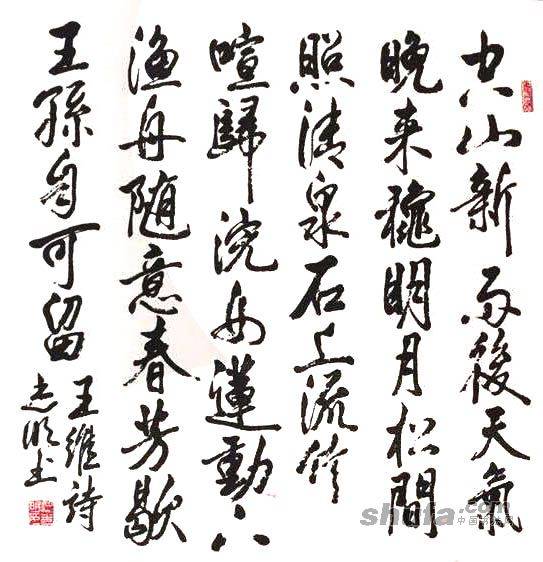 空山新雨後天氣
晚来穐明月松間
照清泉石上流竹
喧歸浣女蓮動下
渔舟随意春芳歇
王孫自可留
王維詩
shufa.com中国书法网